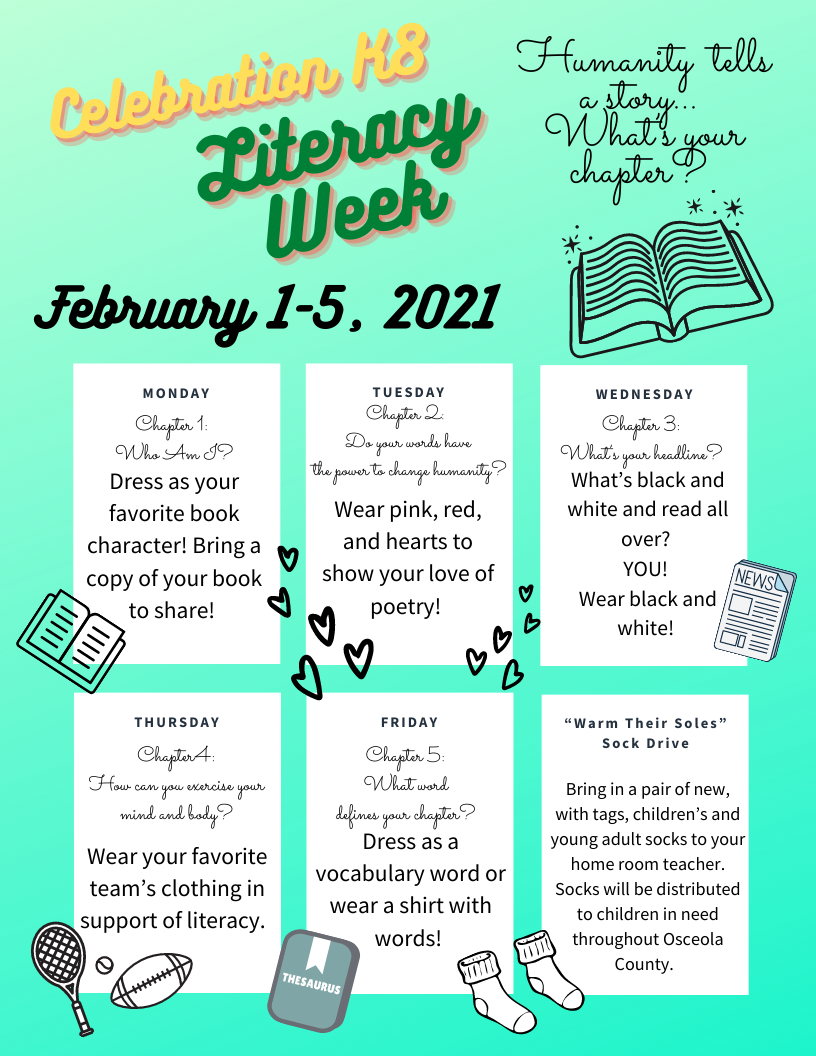 Celebration K8
Literacy
Week
Humanity tells
a story...
What's your
chapter?
February 1-5, 2021
MONDAY
Chapter 1:
Who Am I?
Dress as your
favorite book
character! Bring a
copy of your book
to share!
TUESDAY
Chapter 2:
Do your words have
the power to change humanity?
Wear pink, red,
and hearts to
show your love of
poetry!
WEDNESDAY
Chapter 3:
What's your headline?
What's black and
white and read all
over?
YOU!
Wear black and
white!
NEWS
THURSDAY
Chapter4:
How can you exercise your
mind and body?
Wear your favorite
team's clothing in
support of literacy.
FRIDAY
Chapter 5:
What word
defines your chapter?
Dress as a
vocabulary word or
wear a shirt with
words!
THESAURUS
“Warm Their Soles”
Sock Drive
Bring in a pair of new,
with tags, children's and
young adult socks to your
home room teacher.
Socks will be distributed
to children in need
throughout Osceola
County.